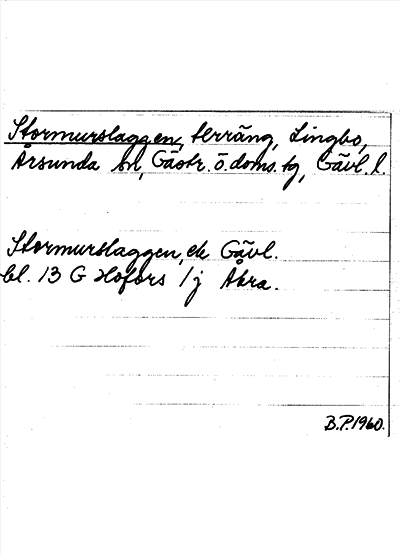 Stormurslaggen, terräng, Lingbo,
Årsunda sn, Gästr. ö. doms. tg, Gävl. l.
Stormurslaggen, ek Gävl.
bl. 13 G Hofors 1 j Åkra.
B.P. 1960.